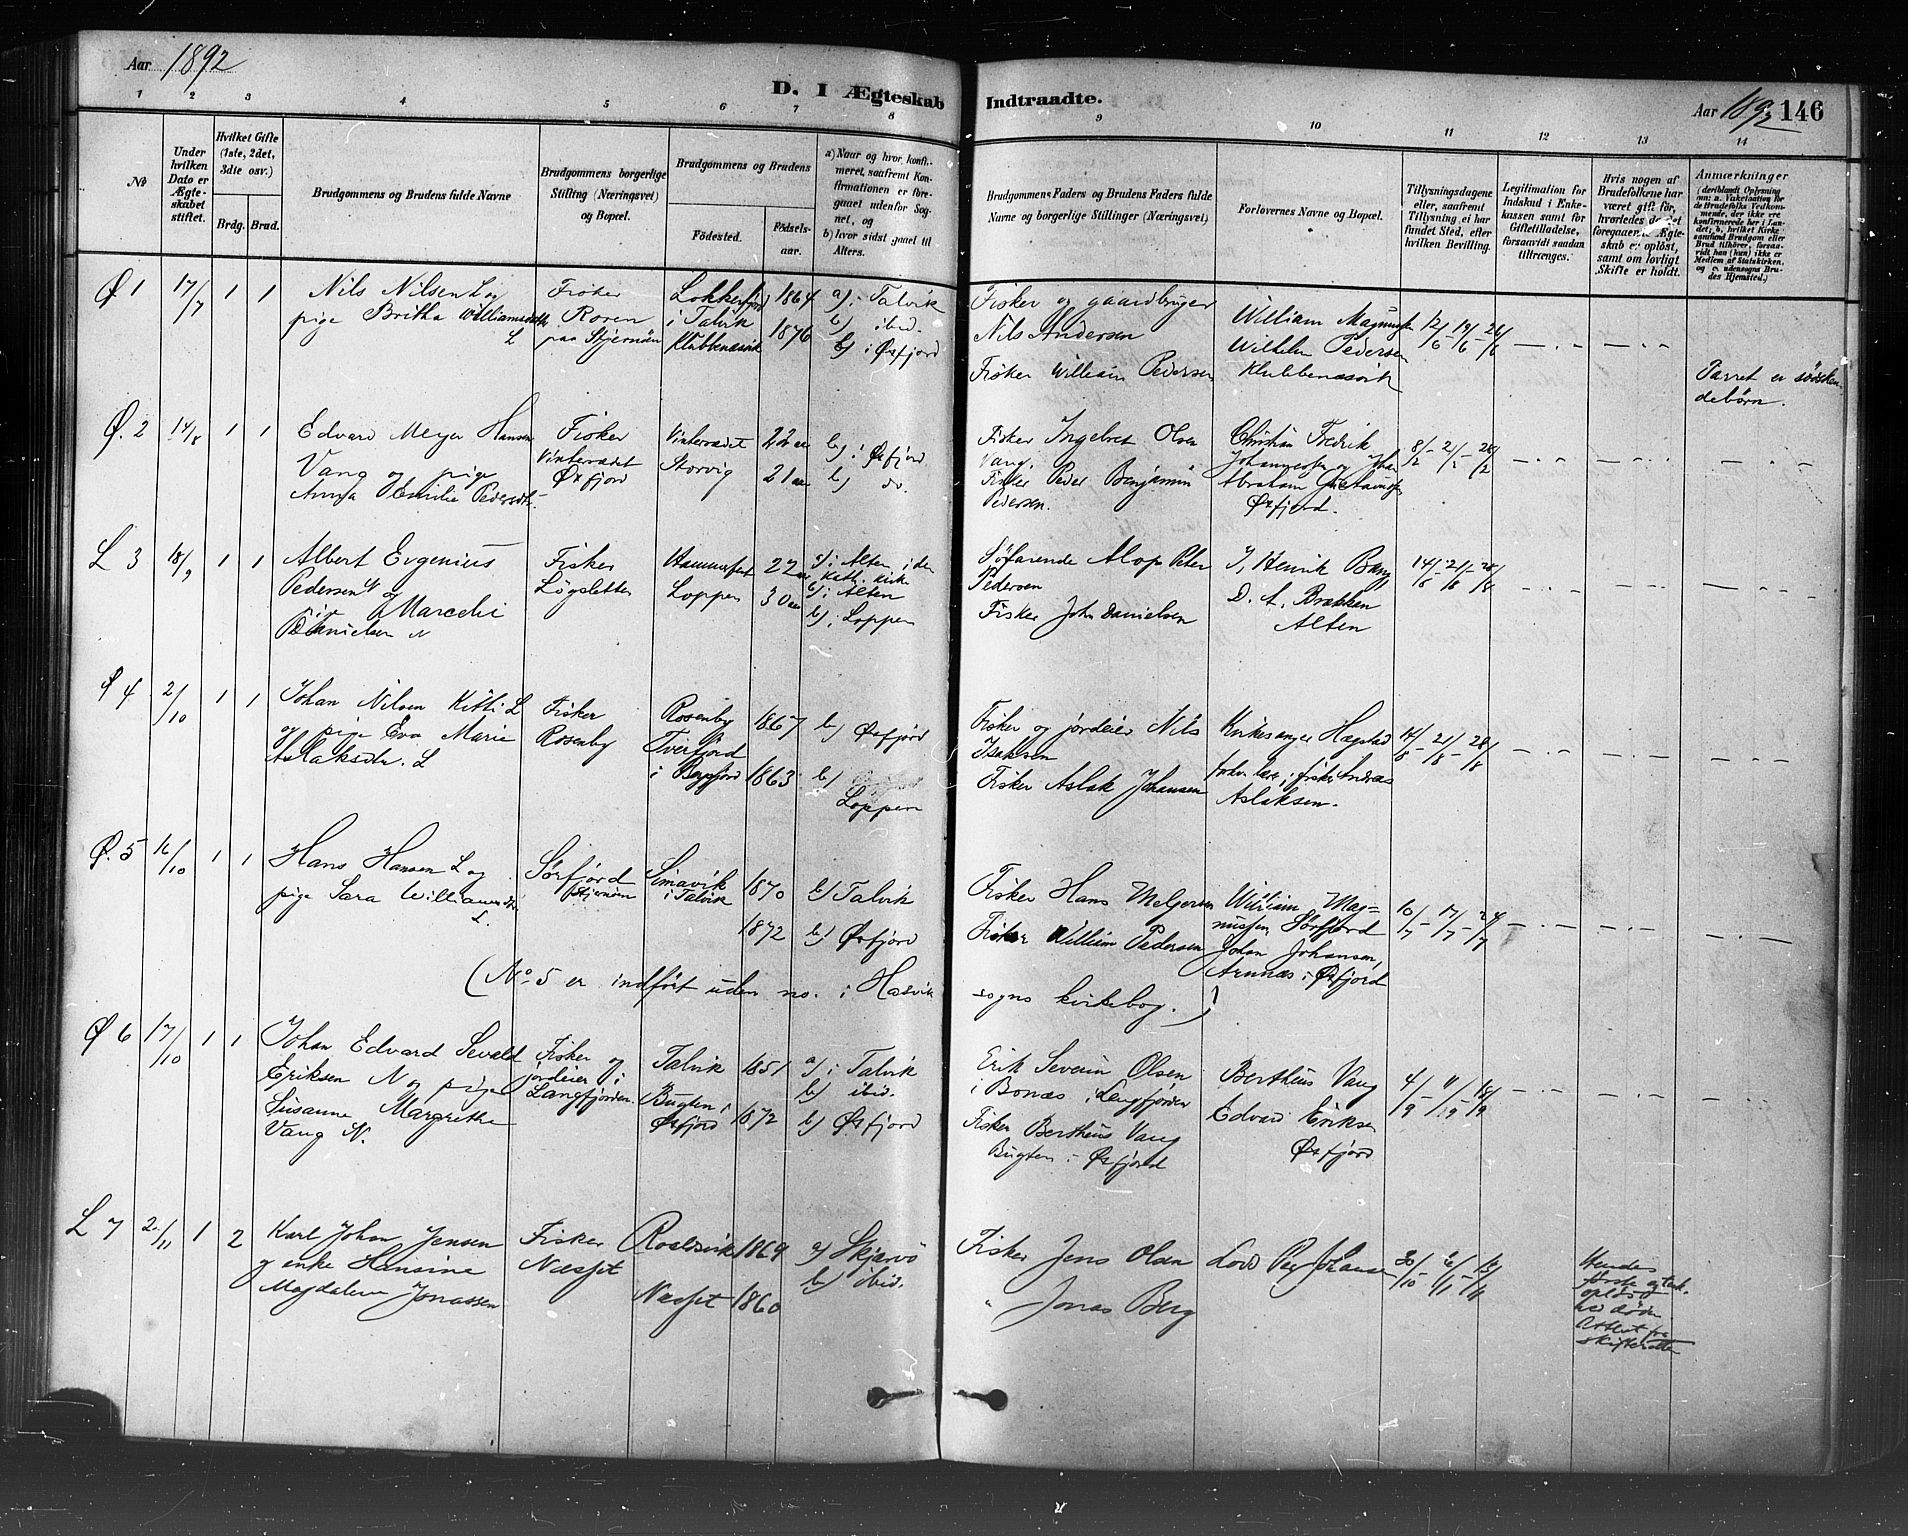 Aar 1892
D. I Ægteskab Indtraadte.
Aar 1892 146
1 2 3 4 5 6 7 8 9 10 11 12 13 14
No
Under hvilken Dato er Ægteskabet stiftet.
Hvilket Gifte (1ste, 2det, 3die osv.)
Brdg. Brud.
Brudgommens og Brudens fulde Navne
Brudgommens borgerlige Stilling (Næringsvei) og Bopæl.
Brudgommens og Brudens
Födested. Födselsaar.
a) Naar og hvor konfirmeret, saafremt Konfirmationen er foregaaet udenfor Sognet, og
b) hvor sidst gaaet til Alters.
Brudgommens Faders og Brudens Faders fulde Navne og borgerlige Stillinger (Næringsvei)
Forlovernes Navne og Bopæl.
Tillysningsdagene eller, saafremt Tillysning ei har fundet Sted, efter hvilken Bevilling.
Legitimation for Indskud i Enkekassen samt for Giftetilladelse, forsaavidt saadan tiltrænges.
Hvis nogen af Brudefolkene har været gift før, hvorledes da det foregaaende Ægteskab er oplöst, samt om lovligt Skifte er holdt.
Anmærkninger
Ø 1 17/7 1 1
Nils Nilsen L og
pige Britha Williamsdatt
L
Fisker
paa Stjernöen
i Talvik
Klubbenæsvik
1864
1876
a) i Talvik
b) ibid.
b) i Øxfjord
Fisker og gaardbruger
Nils Andersen
Fisker William Pedersen
William Magnussen
Wilhelm Pedersen
Klubbenæsvik
12/6 - 19/6 - 26/6
Parret er södskendebörn.
Ø. 2 14/8 1 1
Edvard Meyer Hansen
Vang og pige
Anna Emilie Pedersdt.
Fisker
Vintervædet
Øxfjord
Vintervædet
Storvig
22 aar
21 aar
b) i Øxfjord
b) do.
Fisker Ingebret Olsen
Vang.
Fisker Peder Benjamin
Pedersen.
Christian Fredrik
Johannesen og Johan
Abraham Gustavsen
Øxfjord.
8/2 - 21/2 - 28/2
L 3 18/9 1 1
Albert Evgenius
Pedersen N og
pige Marselie
Danielsen N
Fisker
Lögsletten
Hammerfest
Loppen
22 aar
30 aar
a) i Alten i den
kath. kirke
b) i Alten
b) i Loppen
Söfarende Alop Peter
Pedersen
Fisker John Danielsen
J. Henrik Bang
D. A. Brækken
Alten
14/8 - 21/8 - 28/8
Ø 4 2/10 1 1
Johan Nilsen Kitti L
og pige Eva Marie
Aslaksdtr. L
Fisker
Rosenby
Rosenby
Tverfjord
i Bergfjord
1867
1863
b) Øxfjord
b)
Loppen
Fisker og jordeier Nils
Isaksen
Fisker Aslak Johansen
Kirkesanger Hægstad
fisker Andreas
Aslaksen.
14/8 - 21/8 - 28/8
Ø. 5 16/10 1 1
Hans Hansen L og
pige Sara Williamsdtr.
L.
Sørfjord
Stjernöen
Simavik
i Talvik
1870
1872
b) Talvik
b) Øxfjord
Fisker Hans Melgersen
Fisker William Pedersen
William Magnussen,
Sörfjord
Johan Johansen,
Arnnæs i Øxfjord
10/7 - 17/7 - 24/7
(No 5 er indfört uden no. i Hasvik
sogns kirkebog.)
Ø 6 17/10 1 1
Johan Edvard Sevald
Eriksen N og pige
Susanne Margrethe
Vang N.
Fisker og
jordeier i
Langfjorden.
Talvik
Bugten i
Øxfjord
1851
1872
a) i Talvik
b) ibid.
b) Øxfjord
Erik Severin Olsen
i Bonæs i Langfjorden
Fisker Bertheus Vang
Bugten i Øxfjord
Bertheus Vang
Edvard Eriksen
Øxfjord
4/9 - 11/9 - 18/9
L 7 20/11 1 2
Karl Johan Jensen
og enke Hansine
Magdalene Jonassen
Fisker
Næsset
Næsset
1869
1860
a) Skjærvö
b) ibid.
Fisker Jens Olsen
" Jonas Berg
30/10 - 6/11 - 13/11
Hendes
förste ægtesk.
oplöst
ved döden
Attest fra
skifteretten